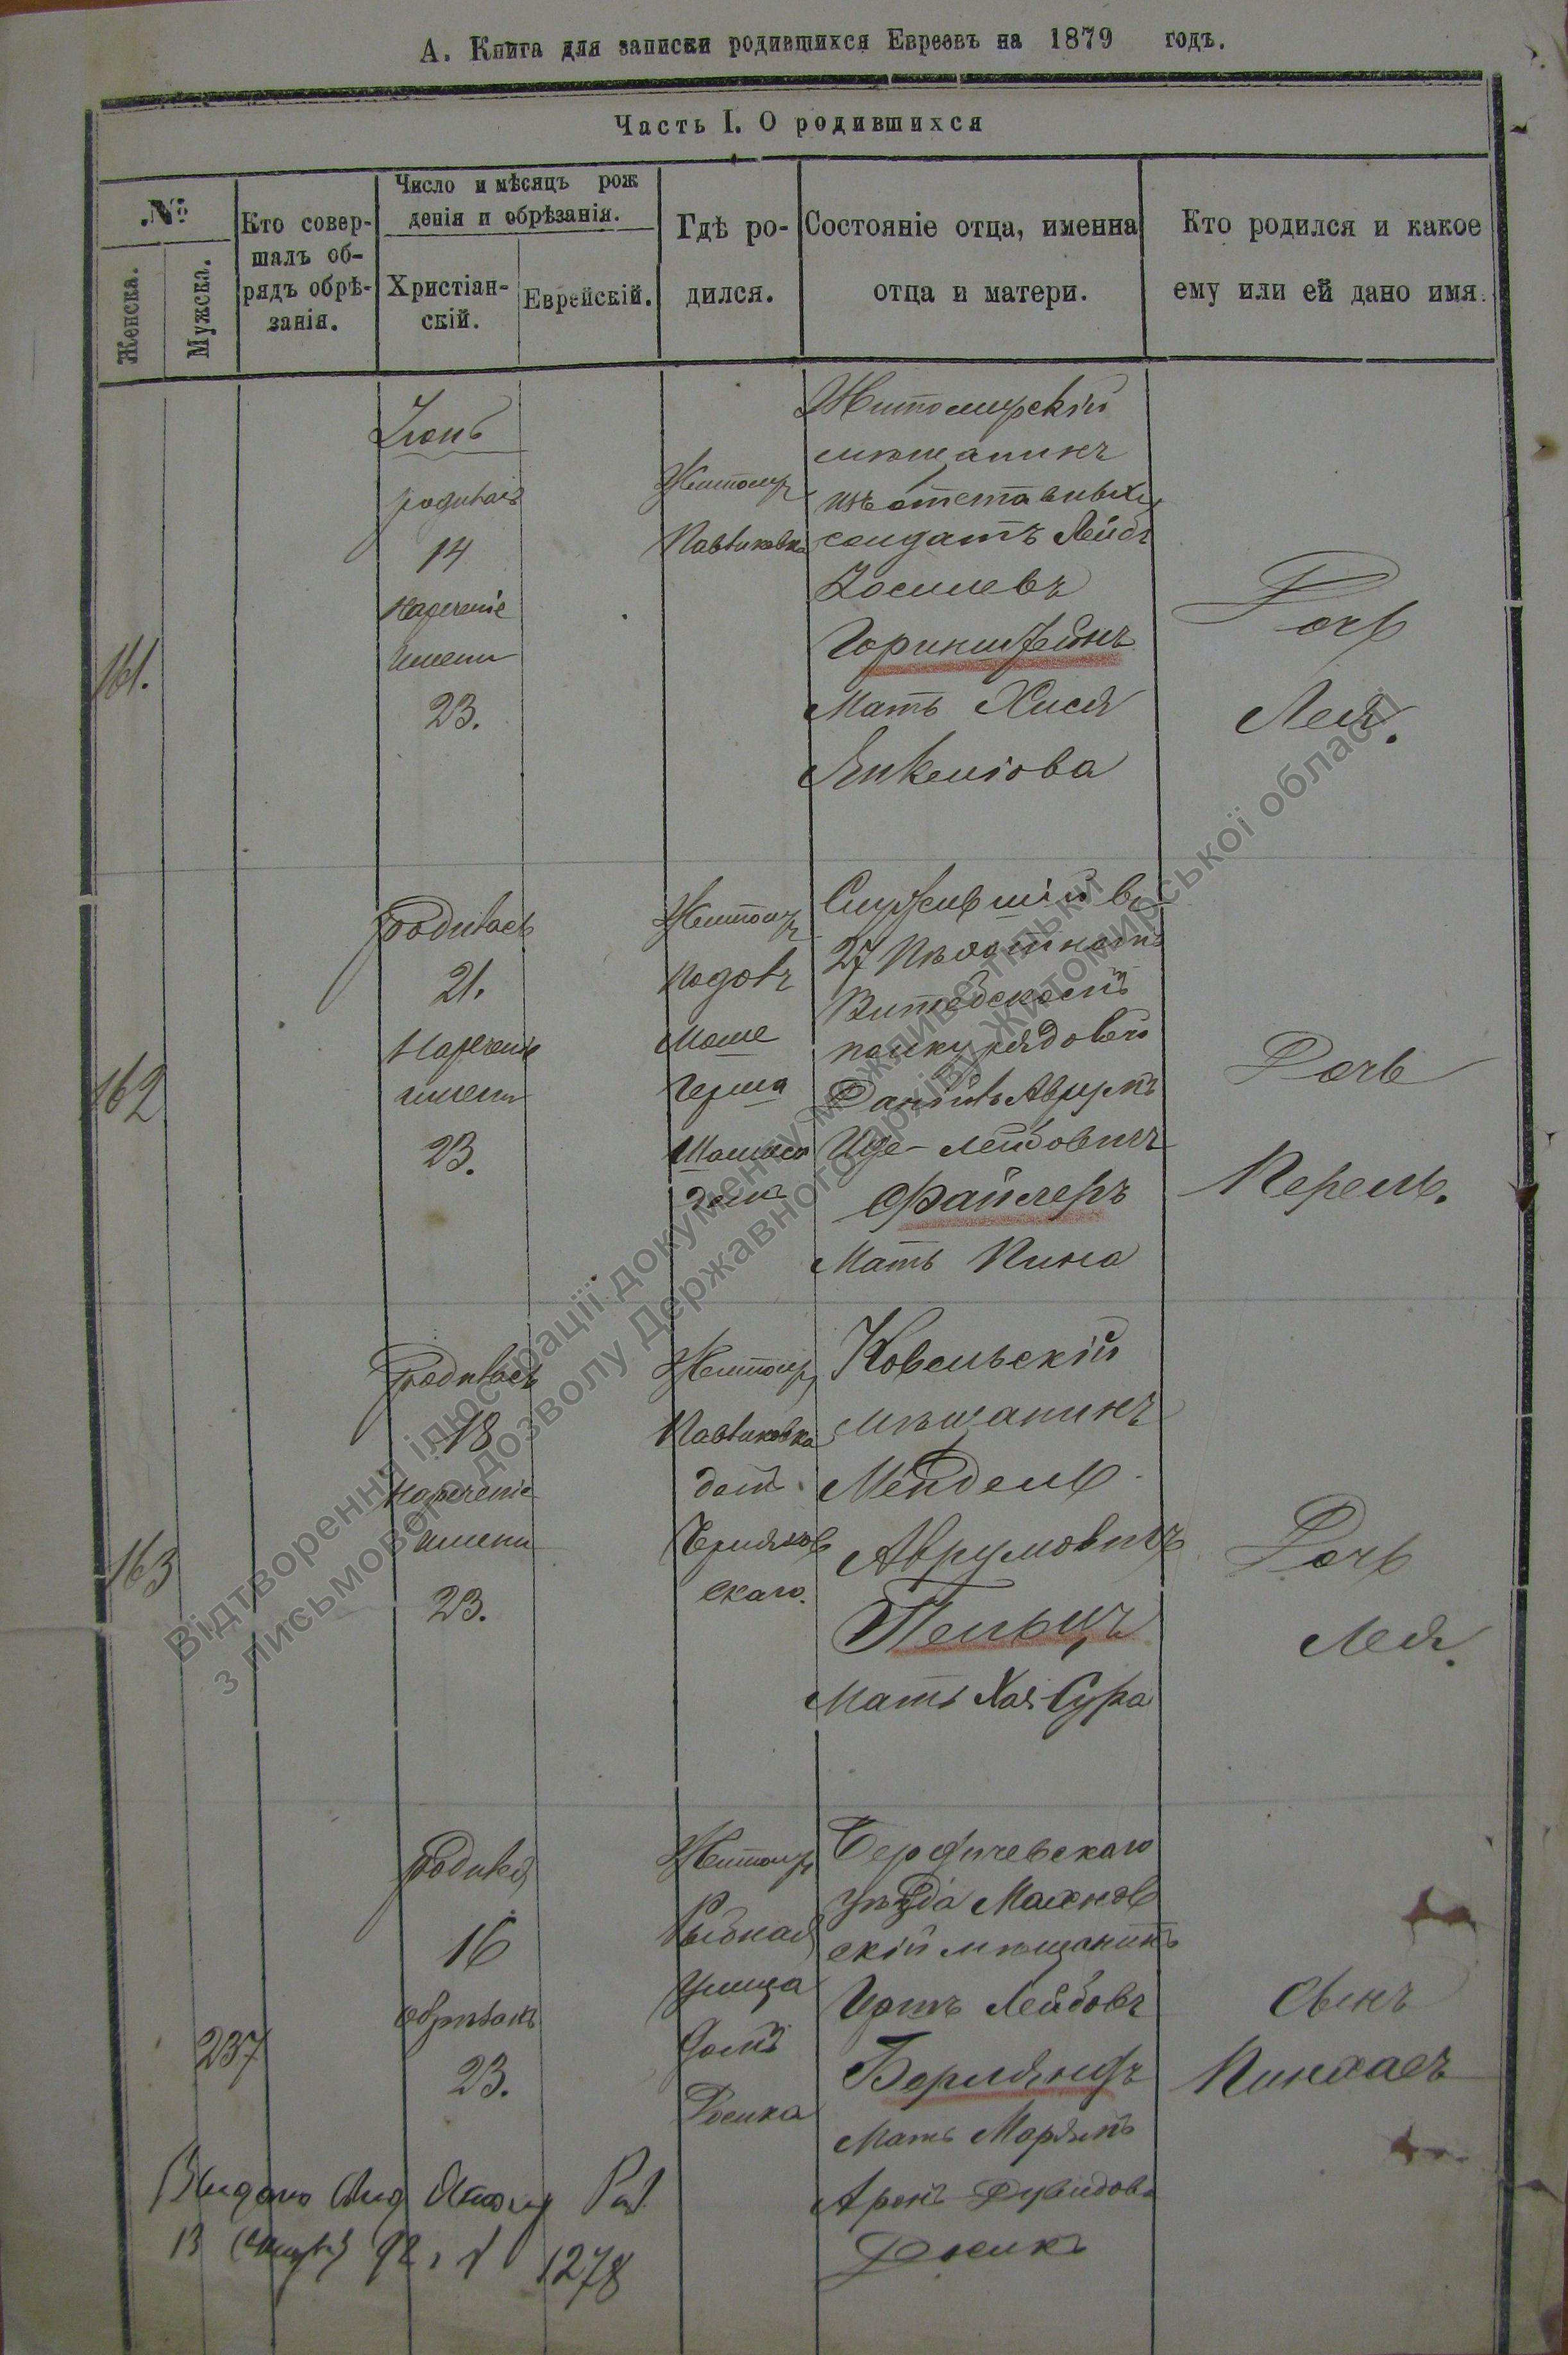 А. Книга для записки родившихся Евреевъ на 1879 годъ.
Часть I. О родившихся
№
Женска.
Мужска.
Кто совер-
шалъ об-
рядъ обрѣ-
занія.
Число и мѣсяцъ рож
денія и обрѣзанія.
Христіан-
скій.
Еврейскій.
Гдѣ ро-
дился.
Состояніе отца, именна
отца и матери.
Кто родился и какое
ему или ей дано имя.
161.
Іюнь
родилась
14
Нареченіе
имени
23.
Житомир
Павликовка
Житомирскій
мѣщанинъ
изъ отставныхъ
солдатъ Лейбъ
Іосилевъ
Горинштейнъ
Мать Хися
Янкелiова
Дочь
Лея.
162
Родилась
21.
Нареченіе
имени
23.
Житомир
Подолъ
Моше
Герша
дома
Служившій въ
27 Пѣхотномъ
Витебскомъ
полку рядовой
Іде-Лейбовичъ
Файлеръ
Мать Пина
Дочь
Перель.
163
Родилась
18
Нареченіе
имени
23.
Житомир
Павликовка
домъ
Черняхов
скаго.
Ковельскій
мѣщанинъ
Мендель
Аврумовичъ
Пельцъ
Мать Хая Сура
Дочь
Лея.
237
Родился
16
обрѣзанъ
23.
Житомир
Рыбная
улица
домъ
Бердичевскаго
уѣзда Махнов
скій мѣщанинъ
Лейбовъ
Берляндъ
Мать Марьямъ
Аронъ Дувидова
Сынъ
Пинхасъ
1278
Відтворення ілюстрації документу можливе тільки
з письмового дозволу Державного архіву Житомирської області